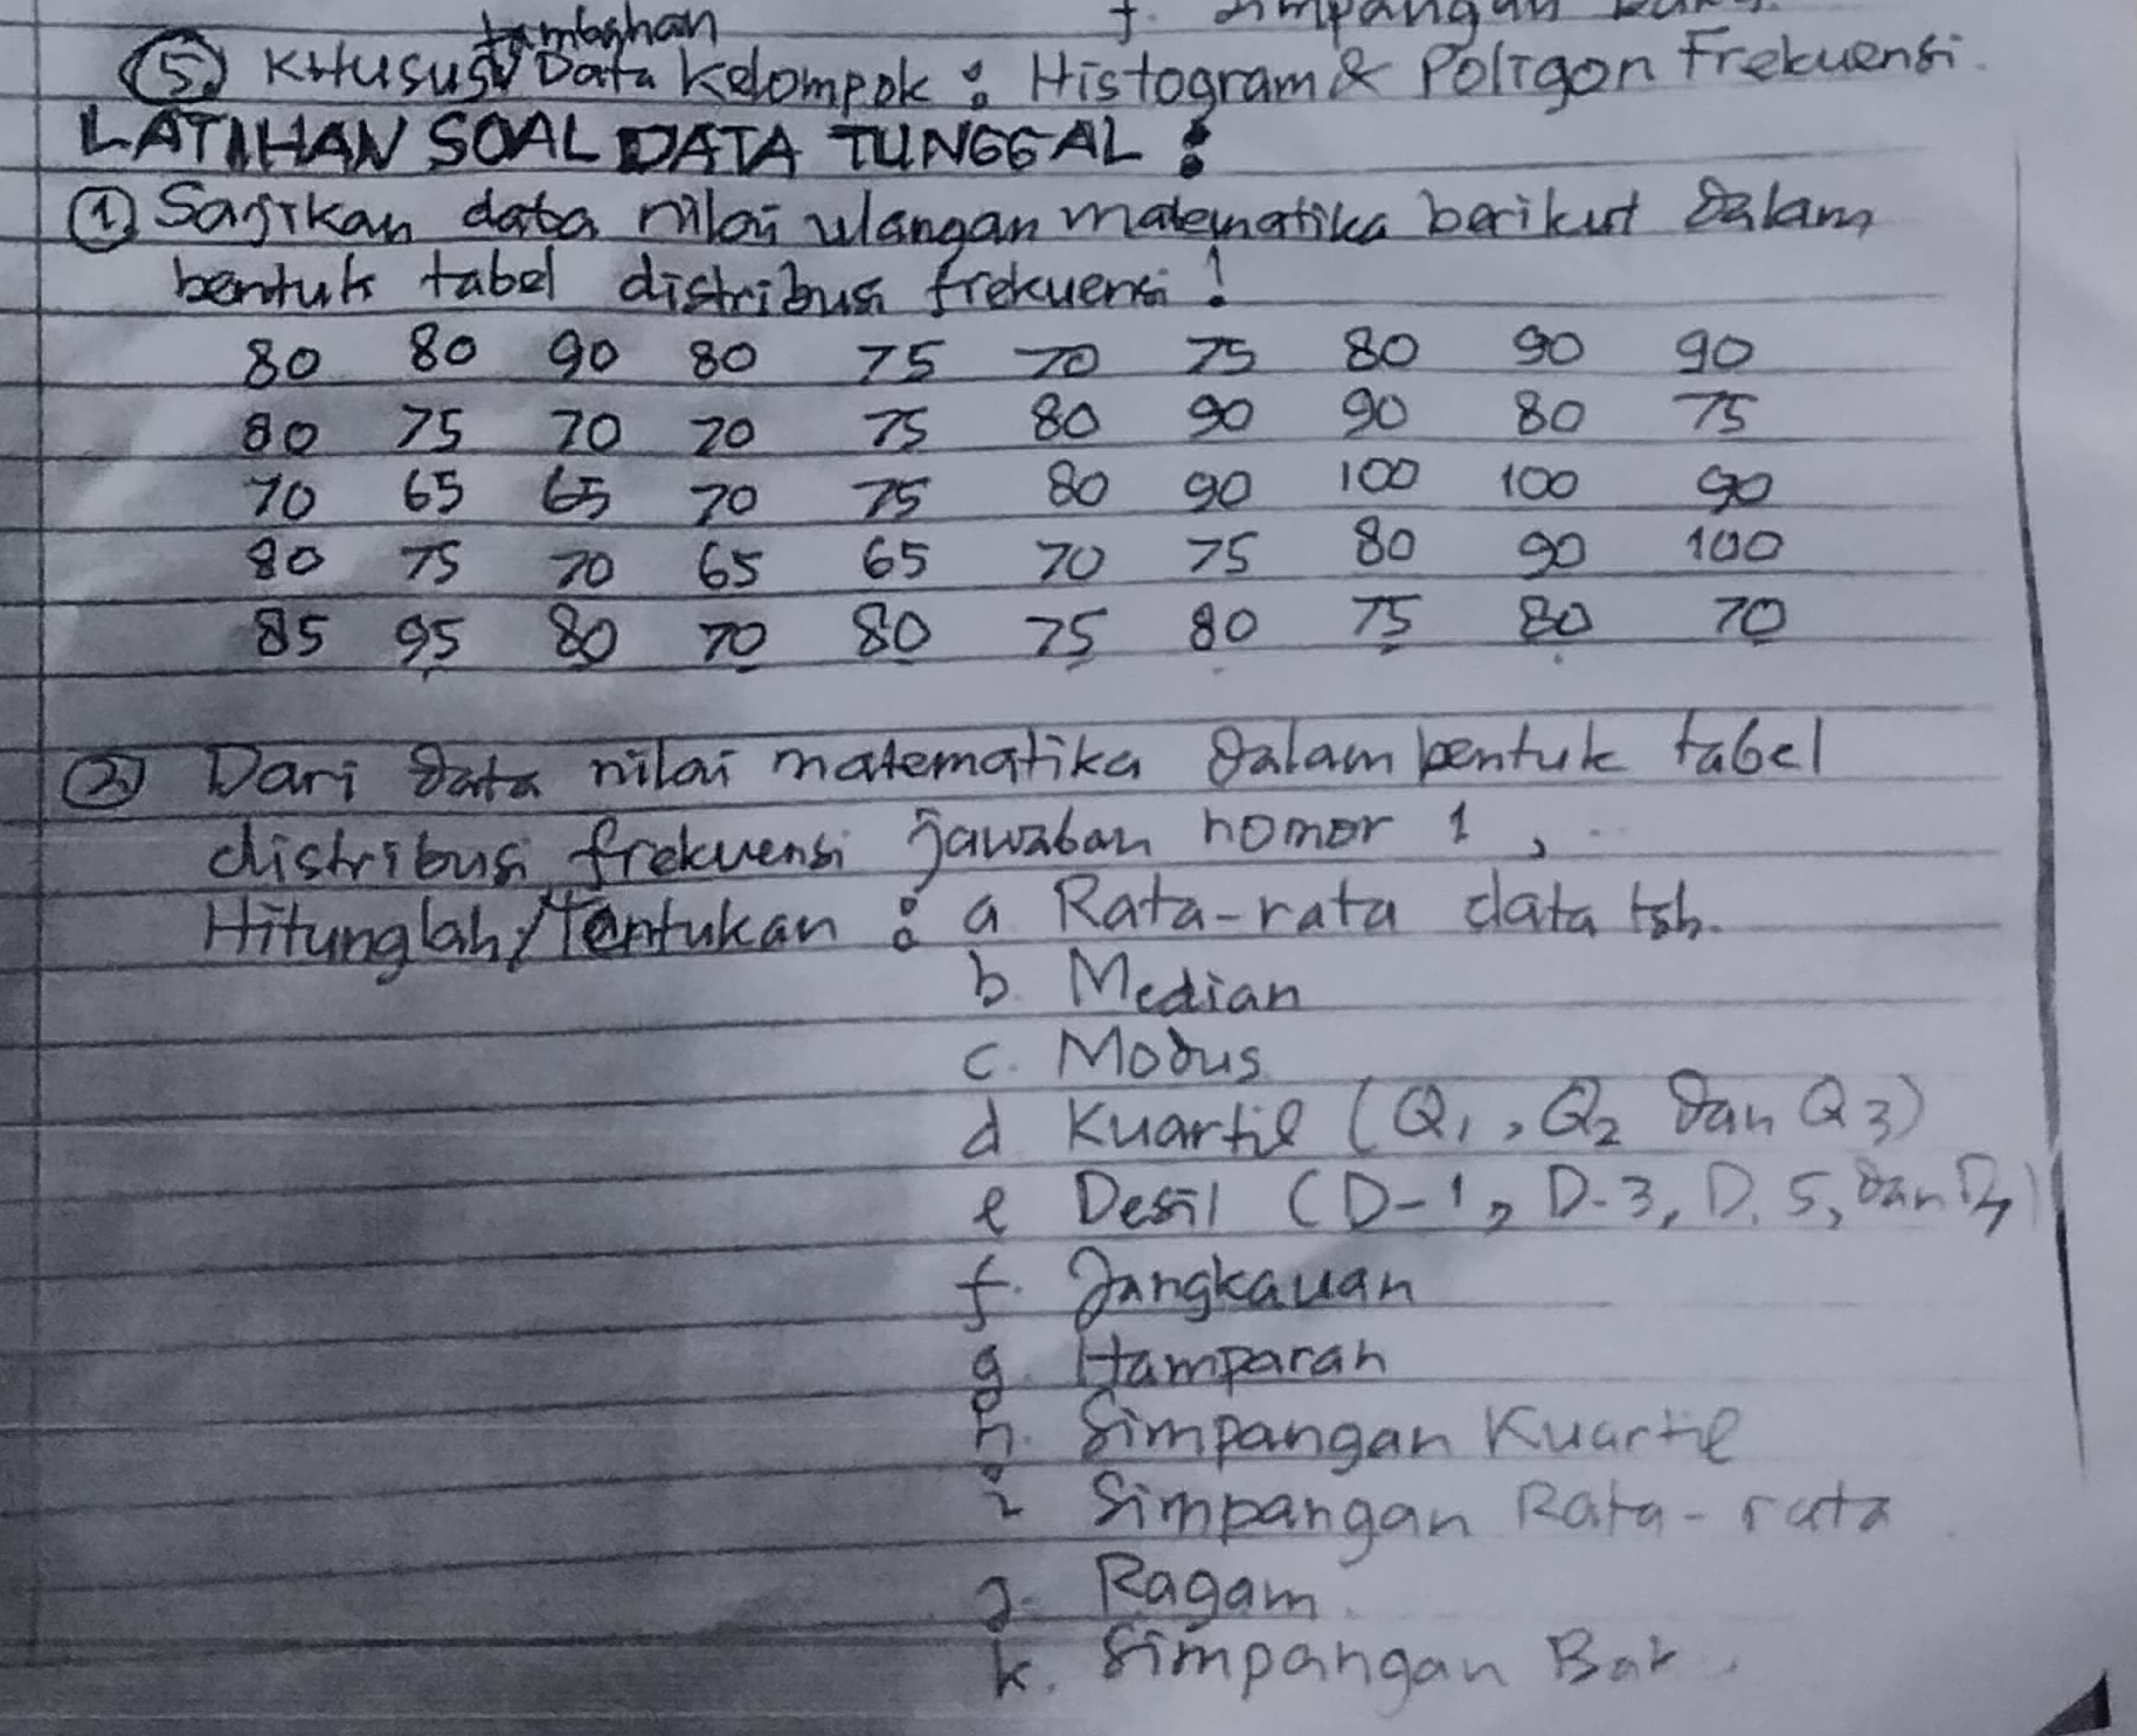 f. Simpangan Baku.
tambahan
⑤ KHusus Data Kelompok : Histogram & Poligon Frekuensi.
LATIHAN SOAL DATA TUNGGAL :
① Sajikan data nilai ulangan matematika berikut dalam
bentuk tabel distribusi frekuensi !
80 80 90 80 75 70 75 80 90 90
80 75 70 70 75 80 90 90 80 75
70 65 65 70 75 80 90 100 100 90
80 75 70 65 65 70 75 80 90 100
85 95 80 70 80 75 80 75 80 70
② Dari data nilai matematika dalam bentuk tabel
distribusi frekuensi jawaban nomor 1 ,
Hitunglah/Tentukan : a Rata-rata data tsb.
b. Median
c. Modus
d Kuartil (Q1, Q2 dan Q3)
e Desil (D-1, D-3, D.5, dan D7)
f. Jangkauan
g. Hamparan
h. Simpangan Kuartil
i Simpangan Rata-rata
j. Ragam
k. Simpangan Bak